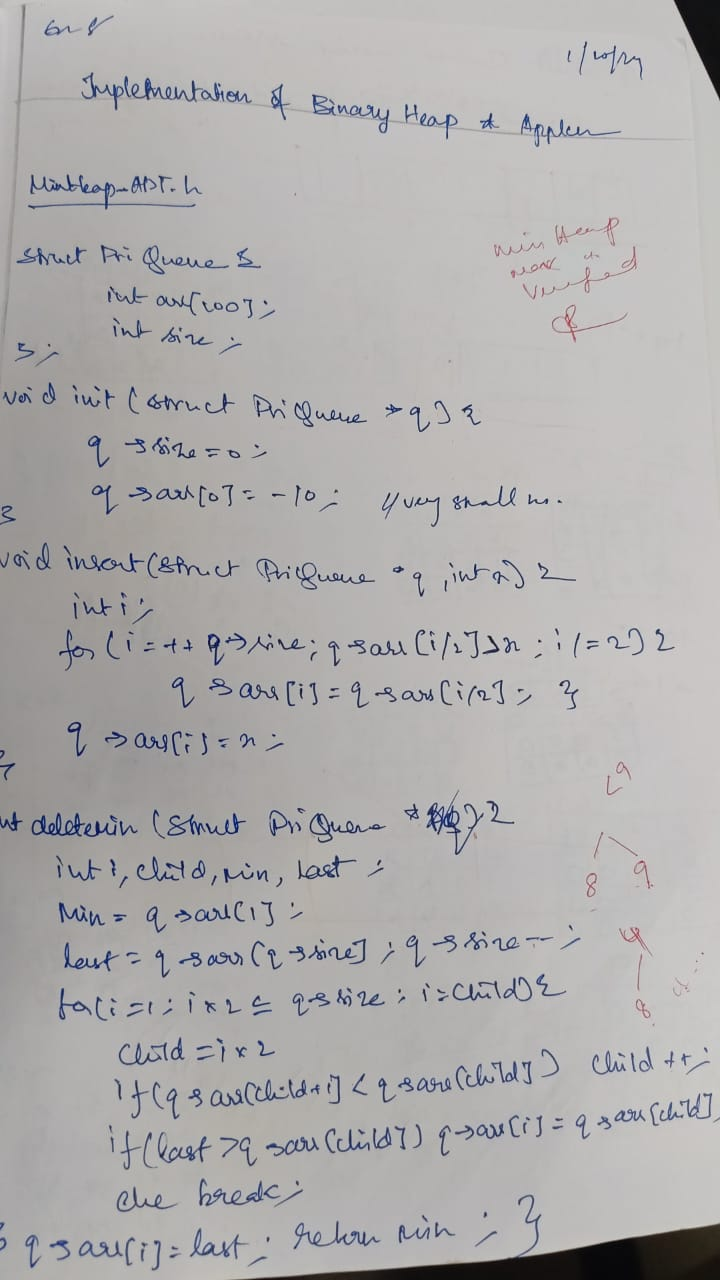 Ex 8
1/10/24
Implementation of Binary Heap & Applcn
MinHeap-ADT.h
struct PriQueue {
int arr[100];
int size;
};
min Heap
verified
void init (struct PriQueue *q) {
q->size = 0;
q->arr[0] = -10; // very small no.
}
void insert (struct PriQueue *q, int x) {
int i;
for (i = ++ q->size; q->arr[i/2] > x; i /= 2) {
q->arr[i] = q->arr[i/2]; }
q->arr[i] = x;
}
int deletemin (struct PriQueue * q) {
int i, child, Min, Last;
Min = q->arr[1];
Last = q->arr[q->size]; q->size--;
for (i=1; i*2 <= q->size; i=child) {
child = i*2
if (q->arr[child+1] < q->arr[child]) child ++;
if (last > q->arr[child]) q->arr[i] = q->arr[child]
else break;
} q->arr[i] = last; return Min; }
9
8 9
8